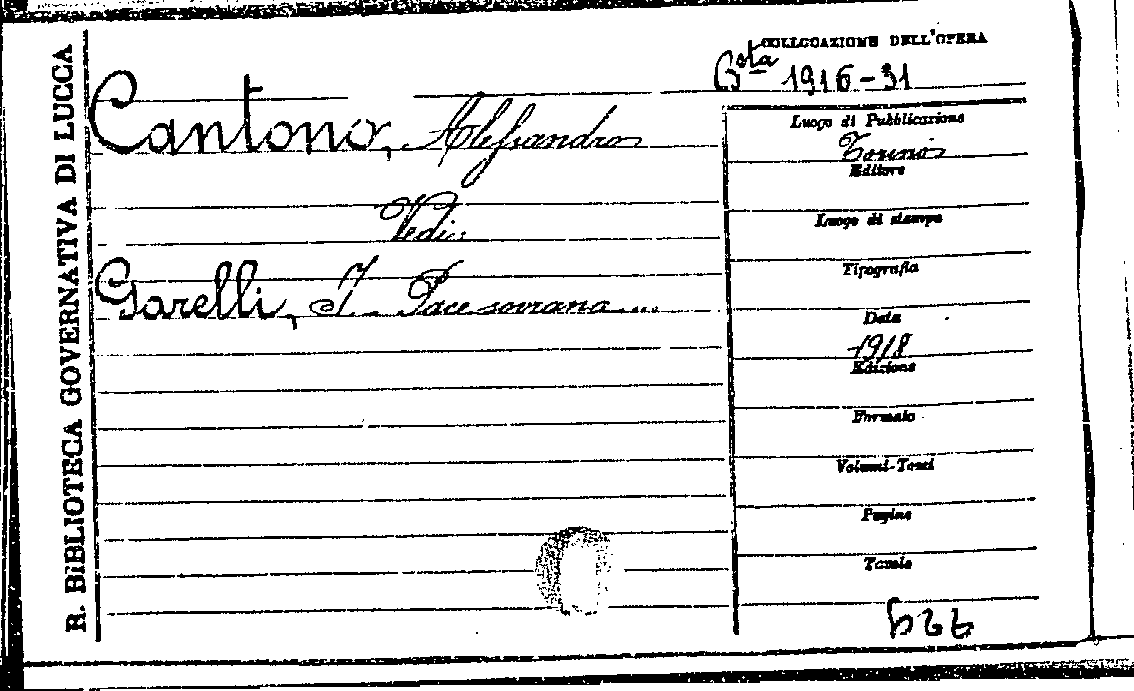 R. BIBLIOTECA GOVERNATIVA DI LUCCA
COLLOCAZIONE DELL'OPERA
Bsta 1916-31
Cantono, Alessandro
Vedi:
Garelli, F. Pace sovrana....
Luogo di Pubblicazione
Torino
Editore
Luogo di stampa
Tipografia
Data
1918
Edizione
Formato
Volumi-Tomi
Pagine
Tavole